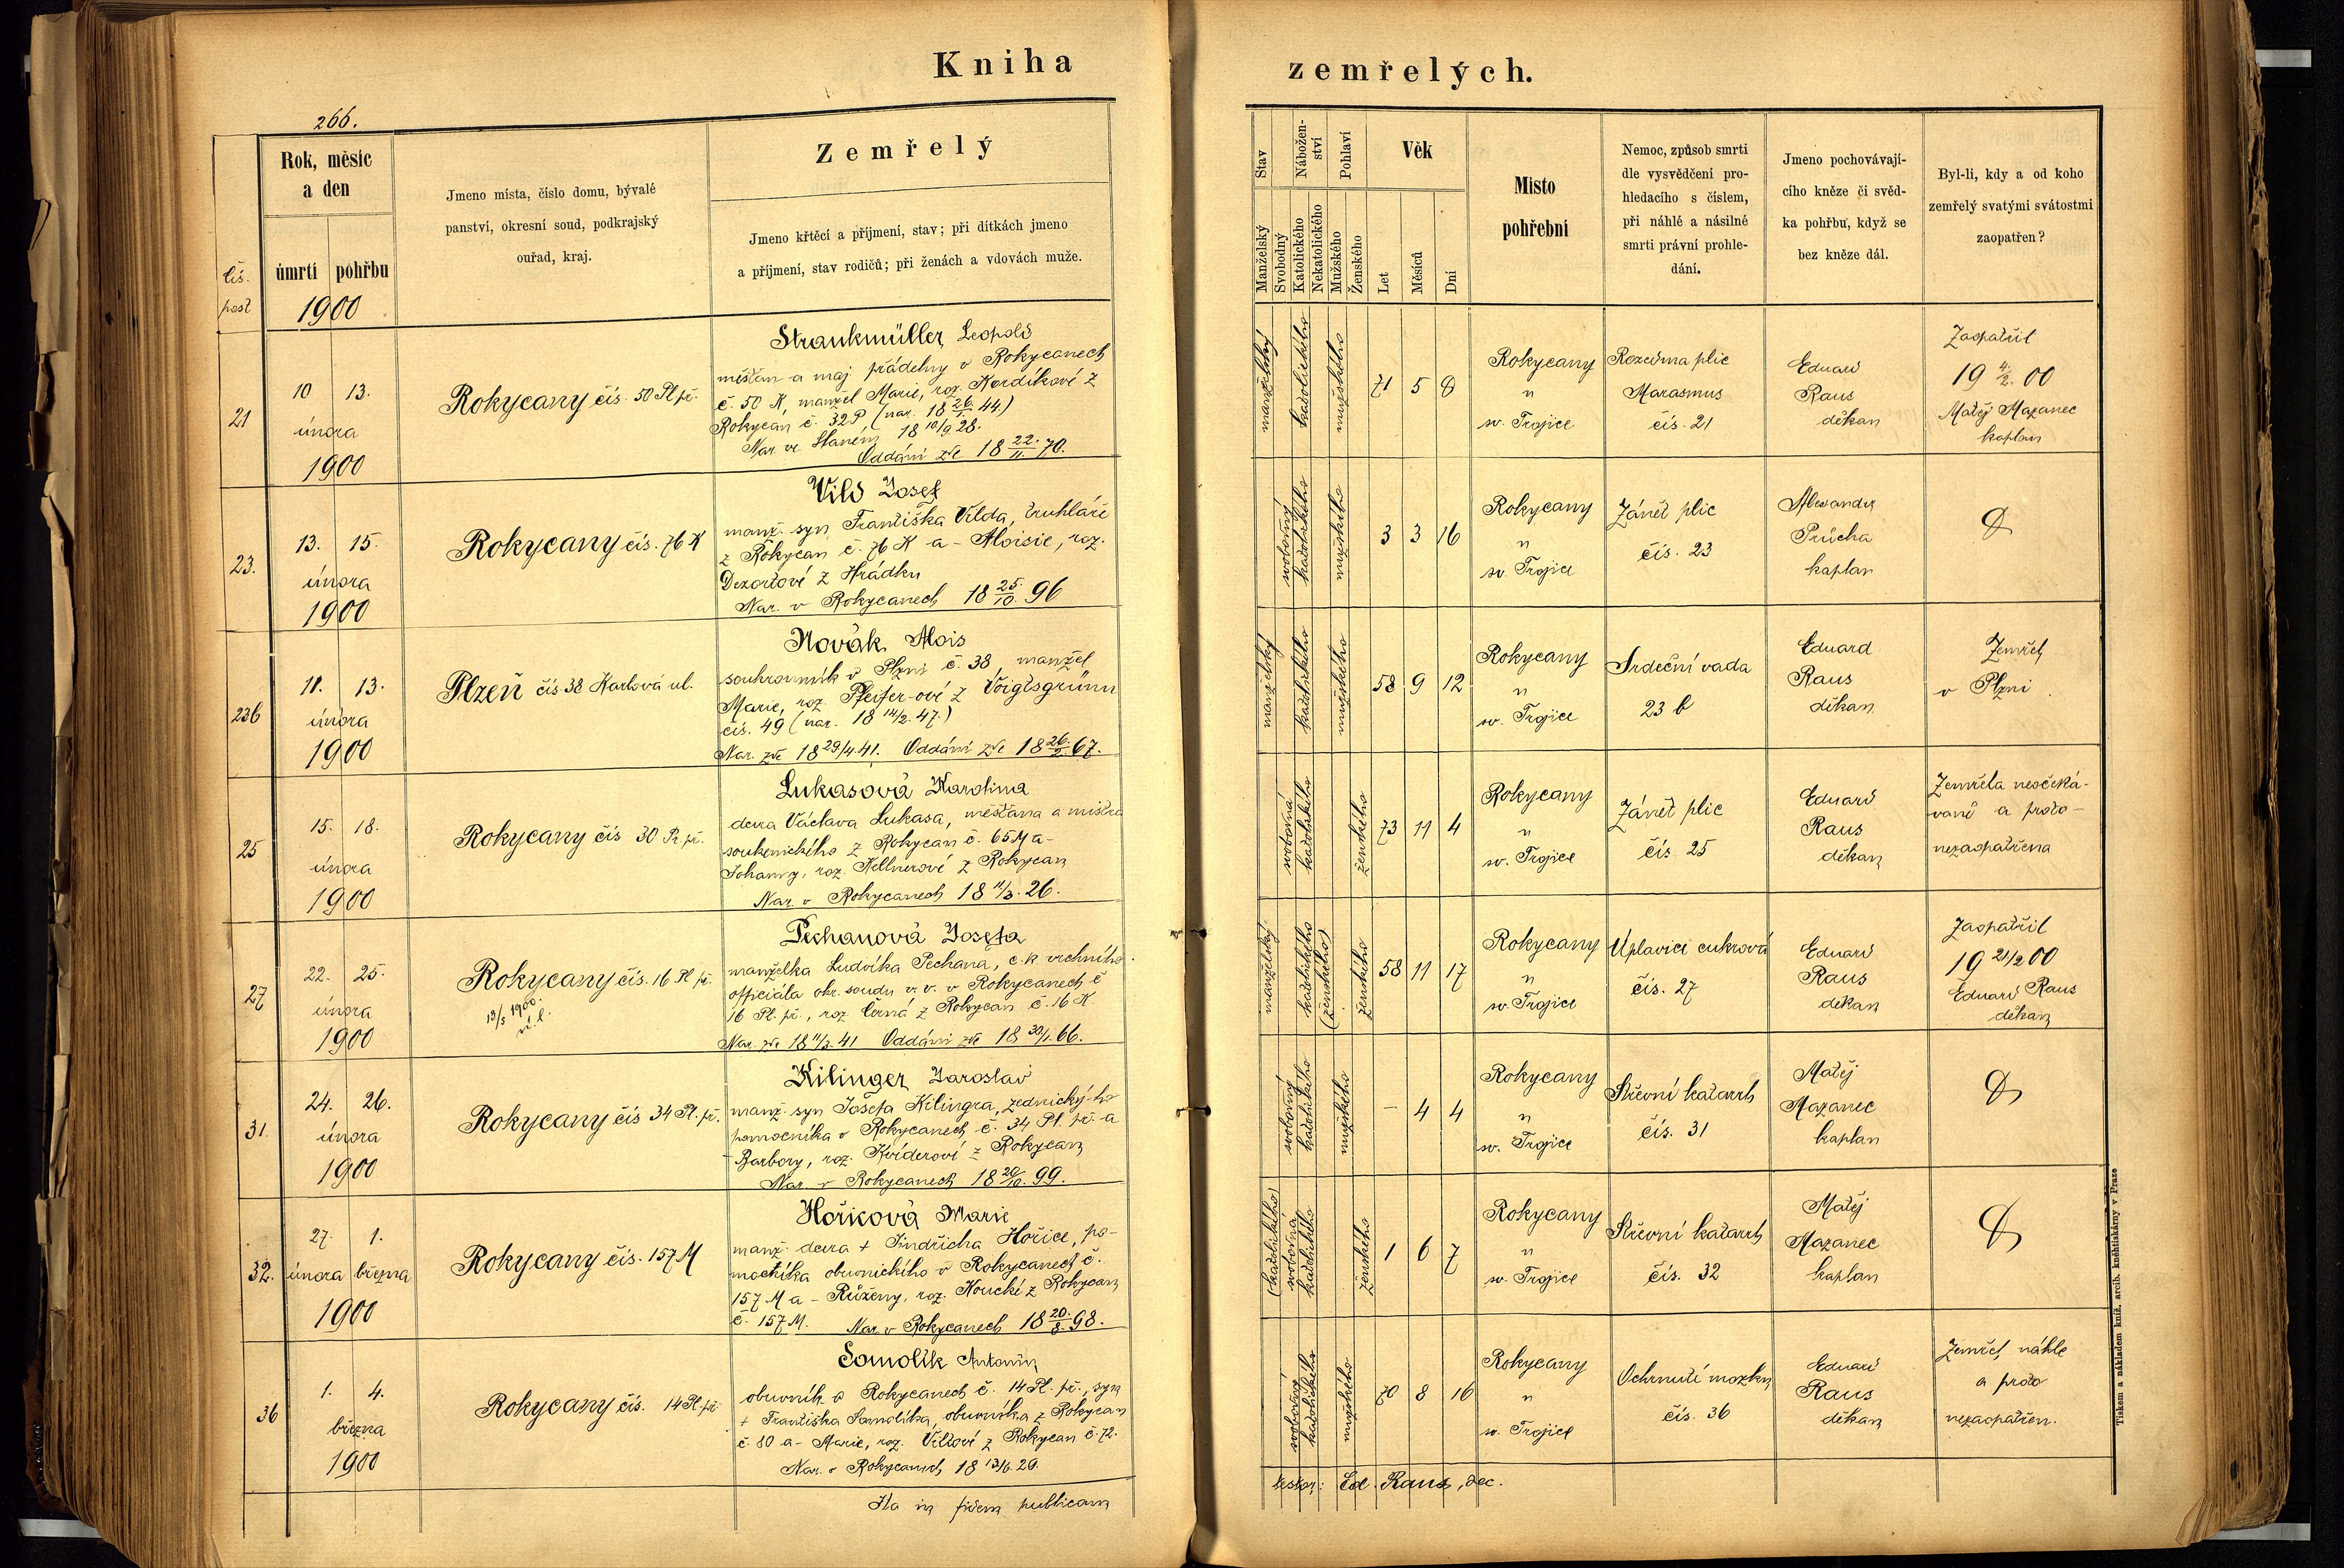 Kniha
zemřelých.
266.
Čís.
post
Rok, měsíc
a den
úmrtí pohřbu
1900
Jmeno místa, číslo domu, bývalé
panství, okresní soud, podkrajský
ouřad, kraj.
Zemřelý
Jmeno křtěcí a příjmení, stav; při dítkách jmeno
a příjmení, stav rodičů; při ženách a vdovách muže.
Stav
Manželský
Svobodný
Nábožen-
ství
Katolického
Nekatolického
Pohlaví
Mužského
Ženského
Věk
Let
Měsíců
Dní
Místo
pohřební
Nemoc, způsob smrti
dle vysvědčení pro-
hledacího s číslem,
při náhlé a násilné
smrti právní prohle-
dání.
Jmeno pochovávají-
cího kněze či svěd-
ka pohřbu, když se
bez kněze dál.
Byl-li, kdy a od koho
zemřelý svatými svátostmi
zaopatřen?
21
10 13.
února
1900
Rokycany čís. 50 Pl. př.
Strankmüller Leopold
měšťan a maj. přádelny v Rokycanech
č. 50 K, manžel Marie, roz. Kordíkové z
Rokycan č. 32 P (nar. 18 26/1. 44.)
Nar. ve 18 10/9. 28.
Oddáni zde 18 22./11. 70.
manželský
katolického
mužského
71 5 8
Rokycany
u
sv. Trojice
Rozedma plic
Marasmus
čís. 21
Eduard
Raus
děkan
Zaopatřil
19 4./2. 00
Matěj Mazanec
kaplan
23.
13. 15.
února
1900
Rokycany čís. 76 K
Vild Josef
manž. syn Františka Vilda, truhláře
z Rokycan č. 76 K a Aloisie, roz.
Dezortové z Hrádku
Nar. v Rokycanech 18 25./10. 96
svobodný
katolického
mužského
3 3 16
Rokycany
u
sv. Trojice
Zánět plic
čís. 23
Alexandr
Průcha
kaplan
23b
11. 13.
února
1900
Plzeň čís 38 Karlová ul.
Novák Alois
soukromník v Plzni č. 38, manžel
Marie, roz. Pfeifer-ové z Voigtsgrünu
čís. 49 (nar. 18 14/2. 47.)
Nar. zde 18 29/4. 41. Oddáni zde 18 26./2. 67.
manželský
katolického
mužského
58 9 12
Rokycany
u
sv. Trojice
Srdeční vada
23 b
Eduard
Raus
děkan
Zemřel
v Plzni.
25
15. 18.
února
1900
Rokycany čís 30 Pr. př.
Lukasová Karolina
dcera Václava Lukasa, měšťana a mistra
soukenického z Rokycan č. 65 M a
Johanny, roz. Kellnerové z Rokycan
Nar. v Rokycanech 18 11/3. 26.
svobodná
katolického
ženského
73 11 4
Rokycany
u
sv. Trojice
Zánět plic
čís. 25
Eduard
Raus
děkan
Zemřela neočeká-
vaně a proto
nezaopatřena
27
22. 25.
února
1900
Rokycany čís. 16 Pl. př.
13/5 1900.
Pechanová Josefa
manželka Ludvíka Pechana, c. k. vrchního
officiála okr. soudu v. v. v Rokycanech č
16 Pl. př., roz. Černá z Rokycan č. 16 K.
Nar. zde 18 11/3. 41 Oddáni zde 18 30/1. 66.
manželský
katolického
(ženského)
ženského
58 11 17
Rokycany
u
sv. Trojice
Úplavice cukrová
čís. 27
Eduard
Raus
děkan
Zaopatřil
19 21/2 00
Eduard Raus
děkan
31.
24. 26.
února
1900
Rokycany čís 34 Pl. př.
Kilinger Jaroslav
manž. syn Josefa Kilingra, zednického
pomocníka v Rokycanech č. 34 Pl. př. a
Barbory, roz. Kviderové z Rokycan
Nar. v Rokycanech 18 20/10. 99.
svobodný
katolického
mužského
– 4 4
Rokycany
u
sv. Trojice
Střevní katarrh
čís. 31
Matěj
Mazanec
kaplan
32.
27. 1.
února března
1900
Rokycany čís. 157 M
Hořicová Marie
manž. dcera + Jindřicha Hořice, po-
mocníka obuvnického v Rokycanech č.
157 M a Růženy, roz. Houcké z Rokycan
č. 157 M. Nar. v Rokycanech 18 20./8. 98.
(katolického)
svobodná
katolického
ženského
1 6 7
Rokycany
u
sv. Trojice
Střevní katarrh
čís. 32
Matěj
Mazanec
kaplan
36
1. 4.
března
1900
Rokycany čís. 14 Pl. př.
Somolík Antonín
obuvník v Rokycanech č. 14 Pl. př., syn
+ Františka Somolíka, obuvníka z Rokycan
č. 80 a Marie, roz. Vildové z Rokycan č. 72.
Nar. v Rokycanech 18 13/6. 29.
svobodný
katolického
mužského
70 8 16
Rokycany
u
sv. Trojice
Ochrnutí mozku
čís. 36
Eduard
Raus
děkan
Zemřel náhle
a proto
nezaopatřen.
Ita in fidem publicam
testor: Ed. Raus, dec.
Tiskem a nákladem kníž. arcib. knihtiskárny v Praze